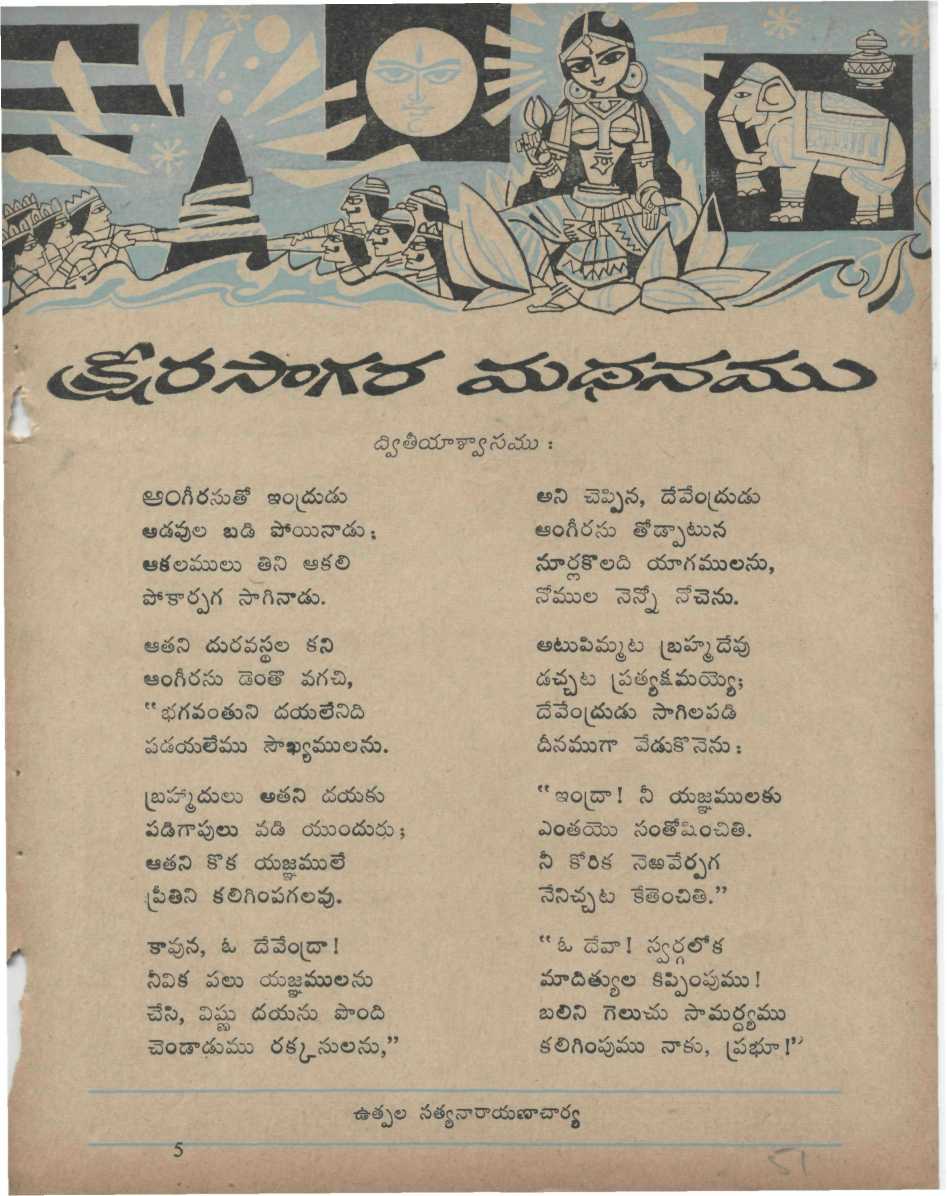 క్షీరసాగర మథనము
ద్వితీయాశ్వాసము :
ఆంగీరసుతో ఇంద్రుడు
అడవుల బడి పోయినాడు;
ఆకలములు తిని ఆకలి
పోకార్పగ సాగినాడు.
ఆతని దురవస్థల కని
ఆంగీరసు డెంతొ వగచి,
“భగవంతుని దయలేనిది
పడయలేము సౌఖ్యములను.
బ్రహ్మాదులు అతని దయకు
పడిగాపులు వడి యుందురు;
ఆతని కొక యజ్ఞములే
ప్రీతిని కలిగింపగలవు.
కావున, ఓ దేవేంద్రా!
నీవిక పలు యజ్ఞములను
చేసి, విష్ణు దయను పొంది
చెండాడుము రక్కసులను,”
అని చెప్పిన, దేవేంద్రుడు
ఆంగీరసు తోడ్పాటున
నూర్లకొలది యాగములను,
నోముల నెన్నో నోచెను.
అటుపిమ్మట బ్రహ్మదేవు
డచ్చట ప్రత్యక్షమయ్యె;
దేవేంద్రుడు సాగిలపడి
దీనముగా వేడుకొనెను:
“ఇంద్రా! నీ యజ్ఞములకు
ఎంతయొ సంతోషించితి.
నీ కోరిక నెఱవేర్పగ
నేనిచ్చట కేతెంచితి.”
“ఓ దేవా! స్వర్గలోక
మాదిత్యుల కిప్పింపుము!
బలిని గెలుచు సామర్ధ్యము
కలిగింపుము నాకు, ప్రభూ!”
ఉత్పల సత్యనారాయణాచార్య
5
51